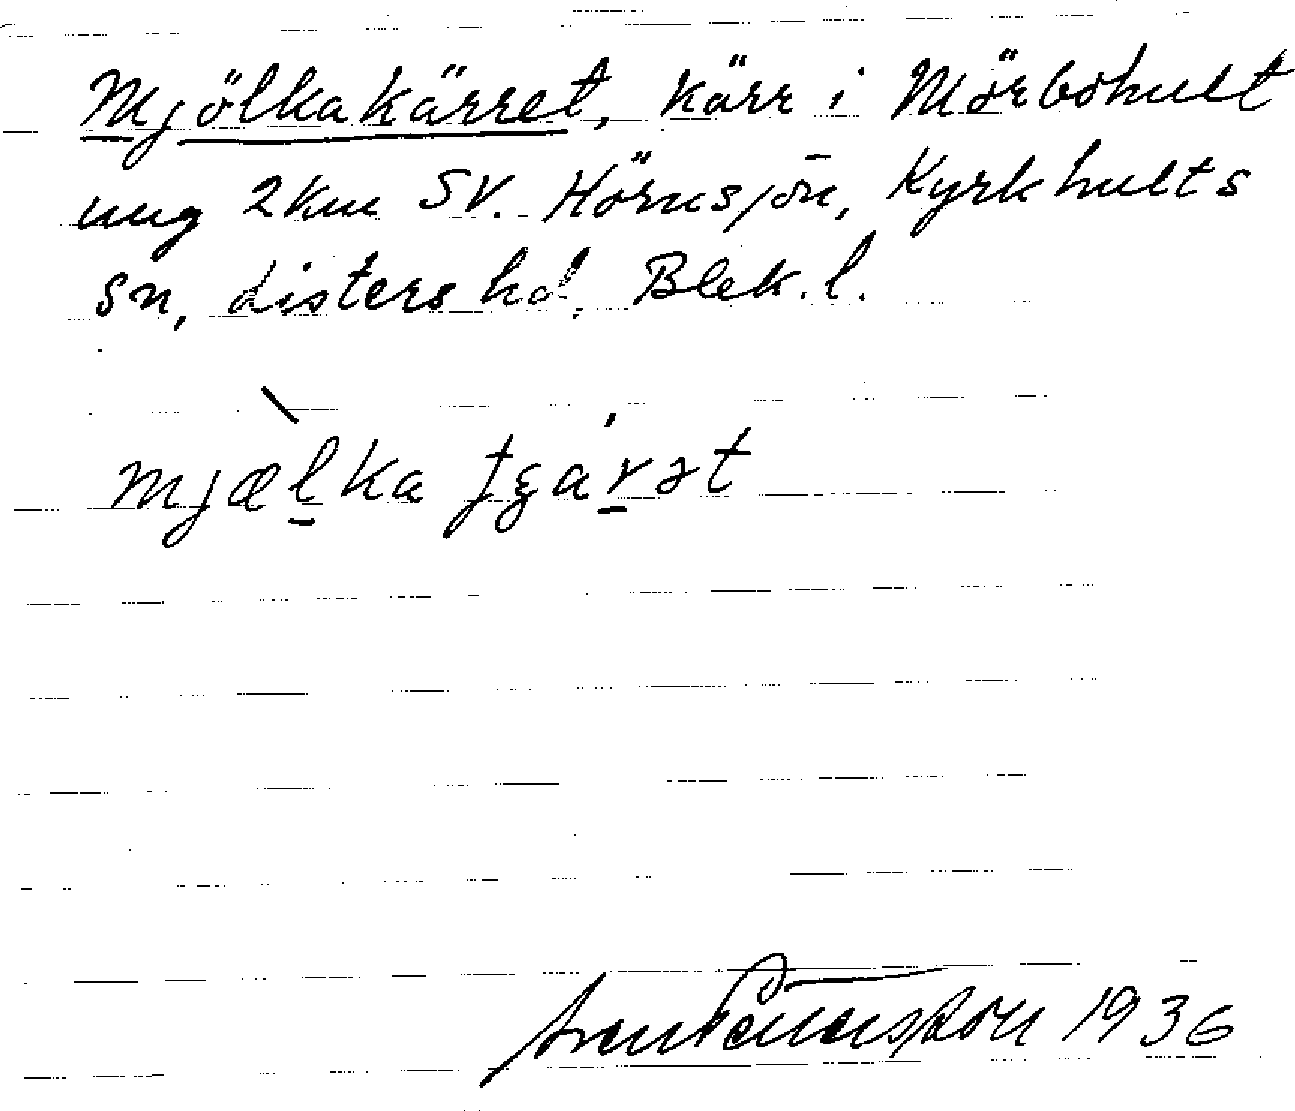 Mjölkakärret, kärr i Mörbohult
ung 2 km SV. Hörnsjön, Kyrkhults
sn, Listers hd. Blek. l.
mjæl̠ka
1936